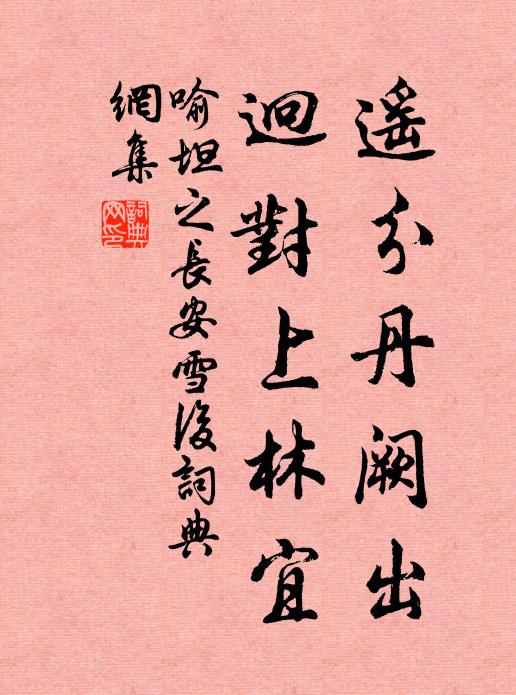 遥分丹闕出
迥對上林宜
喻坦之長安雪後詞典
網集
詞典
网印